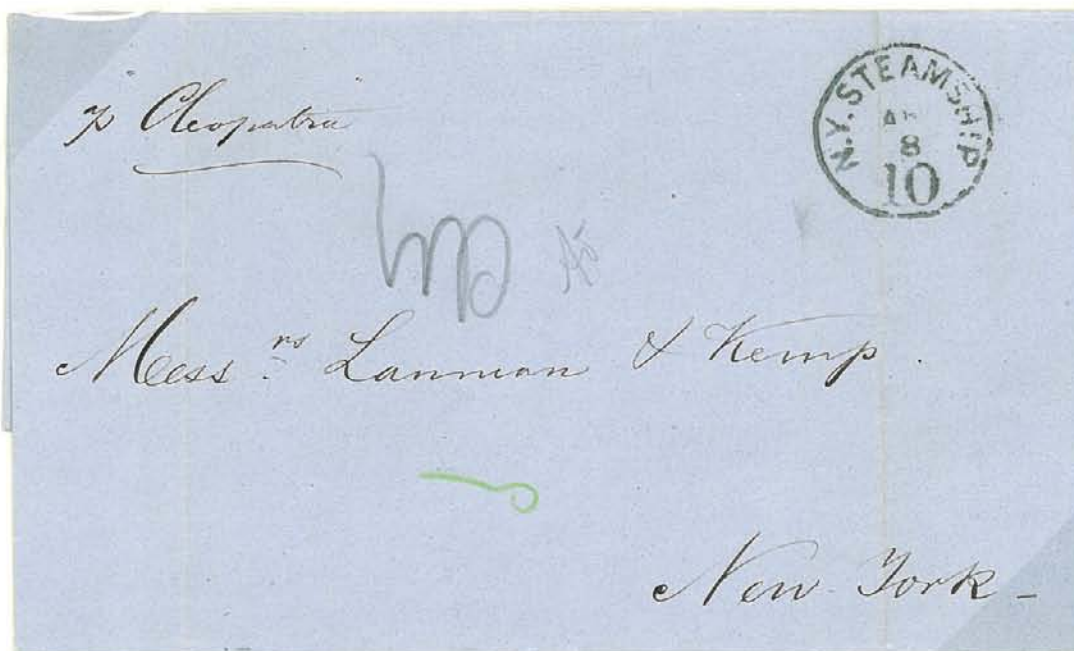 p "Cleopatra"
N.Y. STEAMSHIP
8
10
Mess.rs Lanman & Kemp.
New York -